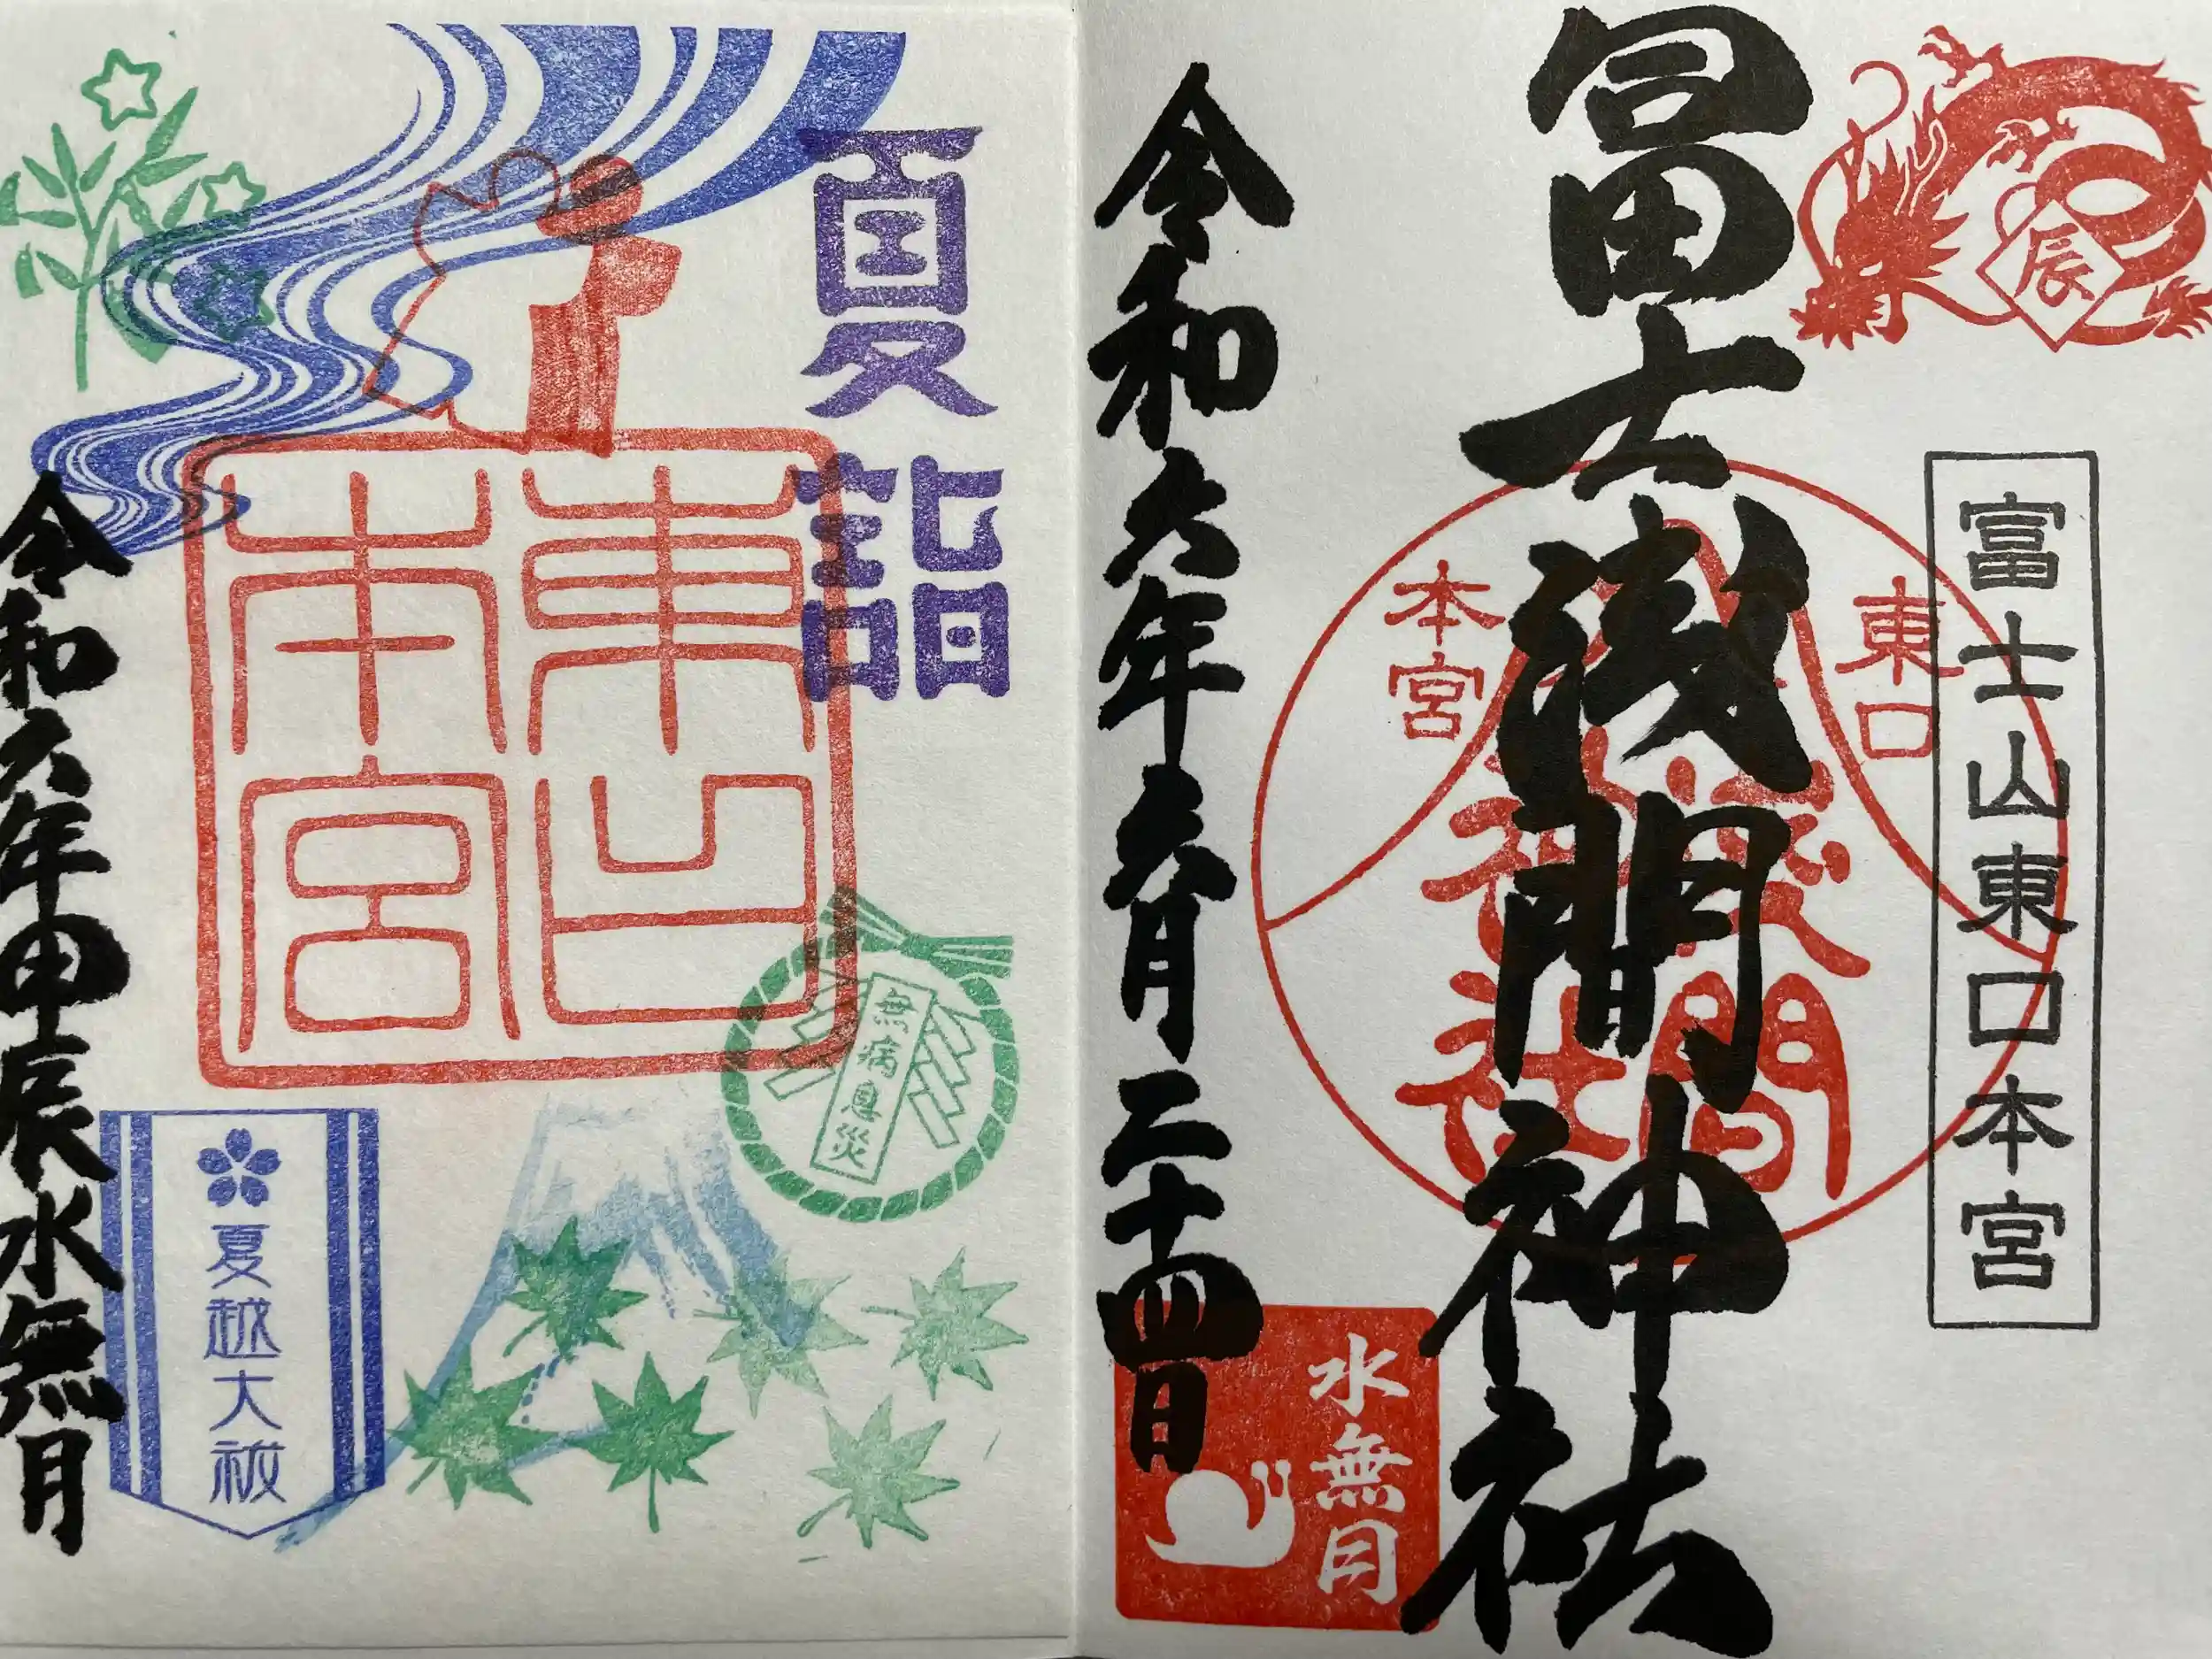 辰
富士山東口本宮
冨士浅間神社
東口
本宮
淺間
神社
令和六年六月二十四日
水無月
夏詣
東口
本宮
無病息災
夏越大祓
令和六年甲辰水無月